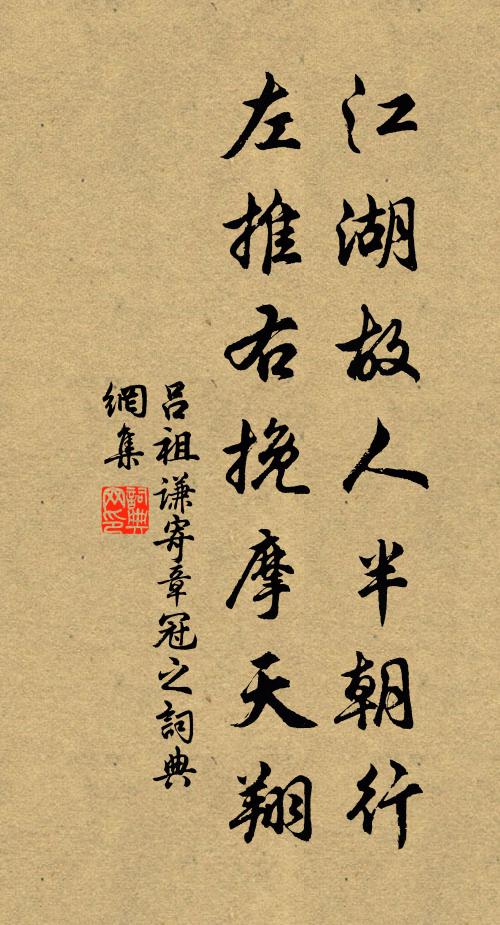 江湖故人半朝行
左推右挽摩天翔
呂祖謙寄章冠之詞典
網集
詞典
网印